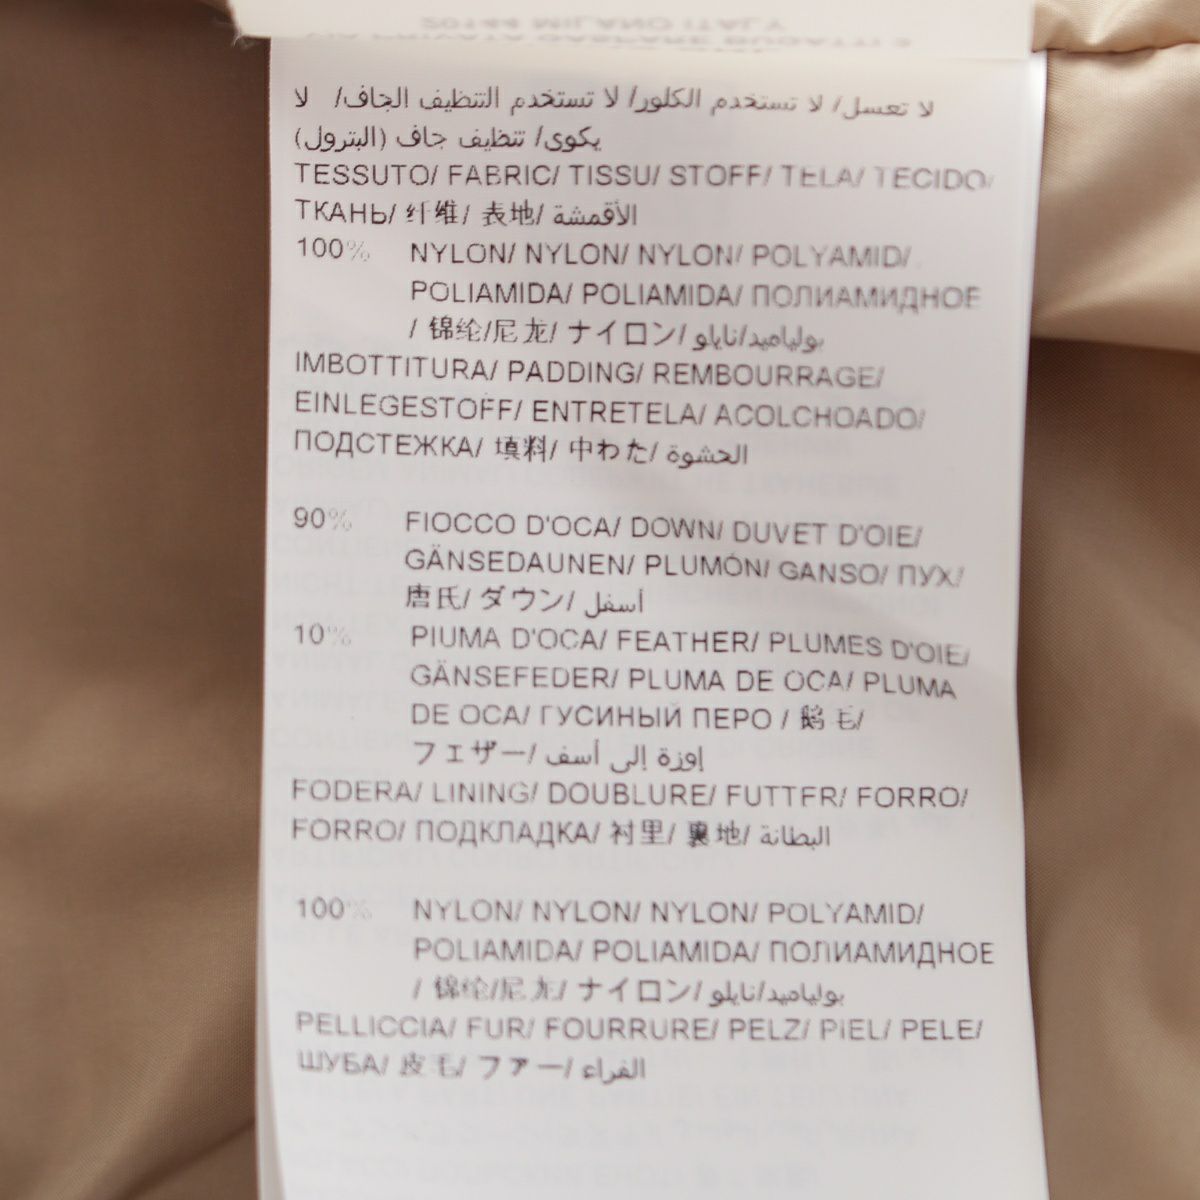 لا تغسل/ لا تستخدم الكلور/ لا تستخدم التنظيف الجاف/ لا
يكوى/ تنظيف جاف (البترول)
TESSUTO/ FABRIC/ TISSU/ STOFF/ TELA/ TECIDO/
ТКАНЬ/ 纤维/ 表地/ الأقمشة
100% NYLON/ NYLON/ NYLON/ POLYAMID/
POLIAMIDA/ POLIAMIDA/ ПОЛИАМИДНОЕ
/ 锦纶/尼龙/ ナイロン/ بولياميد/نايلو
IMBOTTITURA/ PADDING/ REMBOURRAGE/
EINLEGESTOFF/ ENTRETELA/ ACOLCHOADO/
ПОДСТЕЖКА/ 填料/ 中わた/ الحشوة
90% FIOCCO D'OCA/ DOWN/ DUVET D'OIE/
GÄNSEDAUNEN/ PLUMÓN/ GANSO/ ПУХ/
唐氏/ ダウン/ أسفل
10% PIUMA D'OCA/ FEATHER/ PLUMES D'OIE/
GÄNSEFEDER/ PLUMA DE OCA/ PLUMA
DE OCA/ ГУСИНЫЙ ПЕРО / 鹅毛/
フェザー/ إوزة إلى أسف
FODERA/ LINING/ DOUBLURE/ FUTTER/ FORRO/
FORRO/ ПОДКЛАДКА/ 衬里/ 裏地/ البطانة
100% NYLON/ NYLON/ NYLON/ POLYAMID/
POLIAMIDA/ POLIAMIDA/ ПОЛИАМИДНОЕ
/ 锦纶/尼龙/ ナイロン/ بولياميد/نايلو
PELLICCIA/ FUR/ FOURRURE/ PELZ/ PIEL/ PELE/
ШУБА/ 皮毛/ ファー/ الفراء